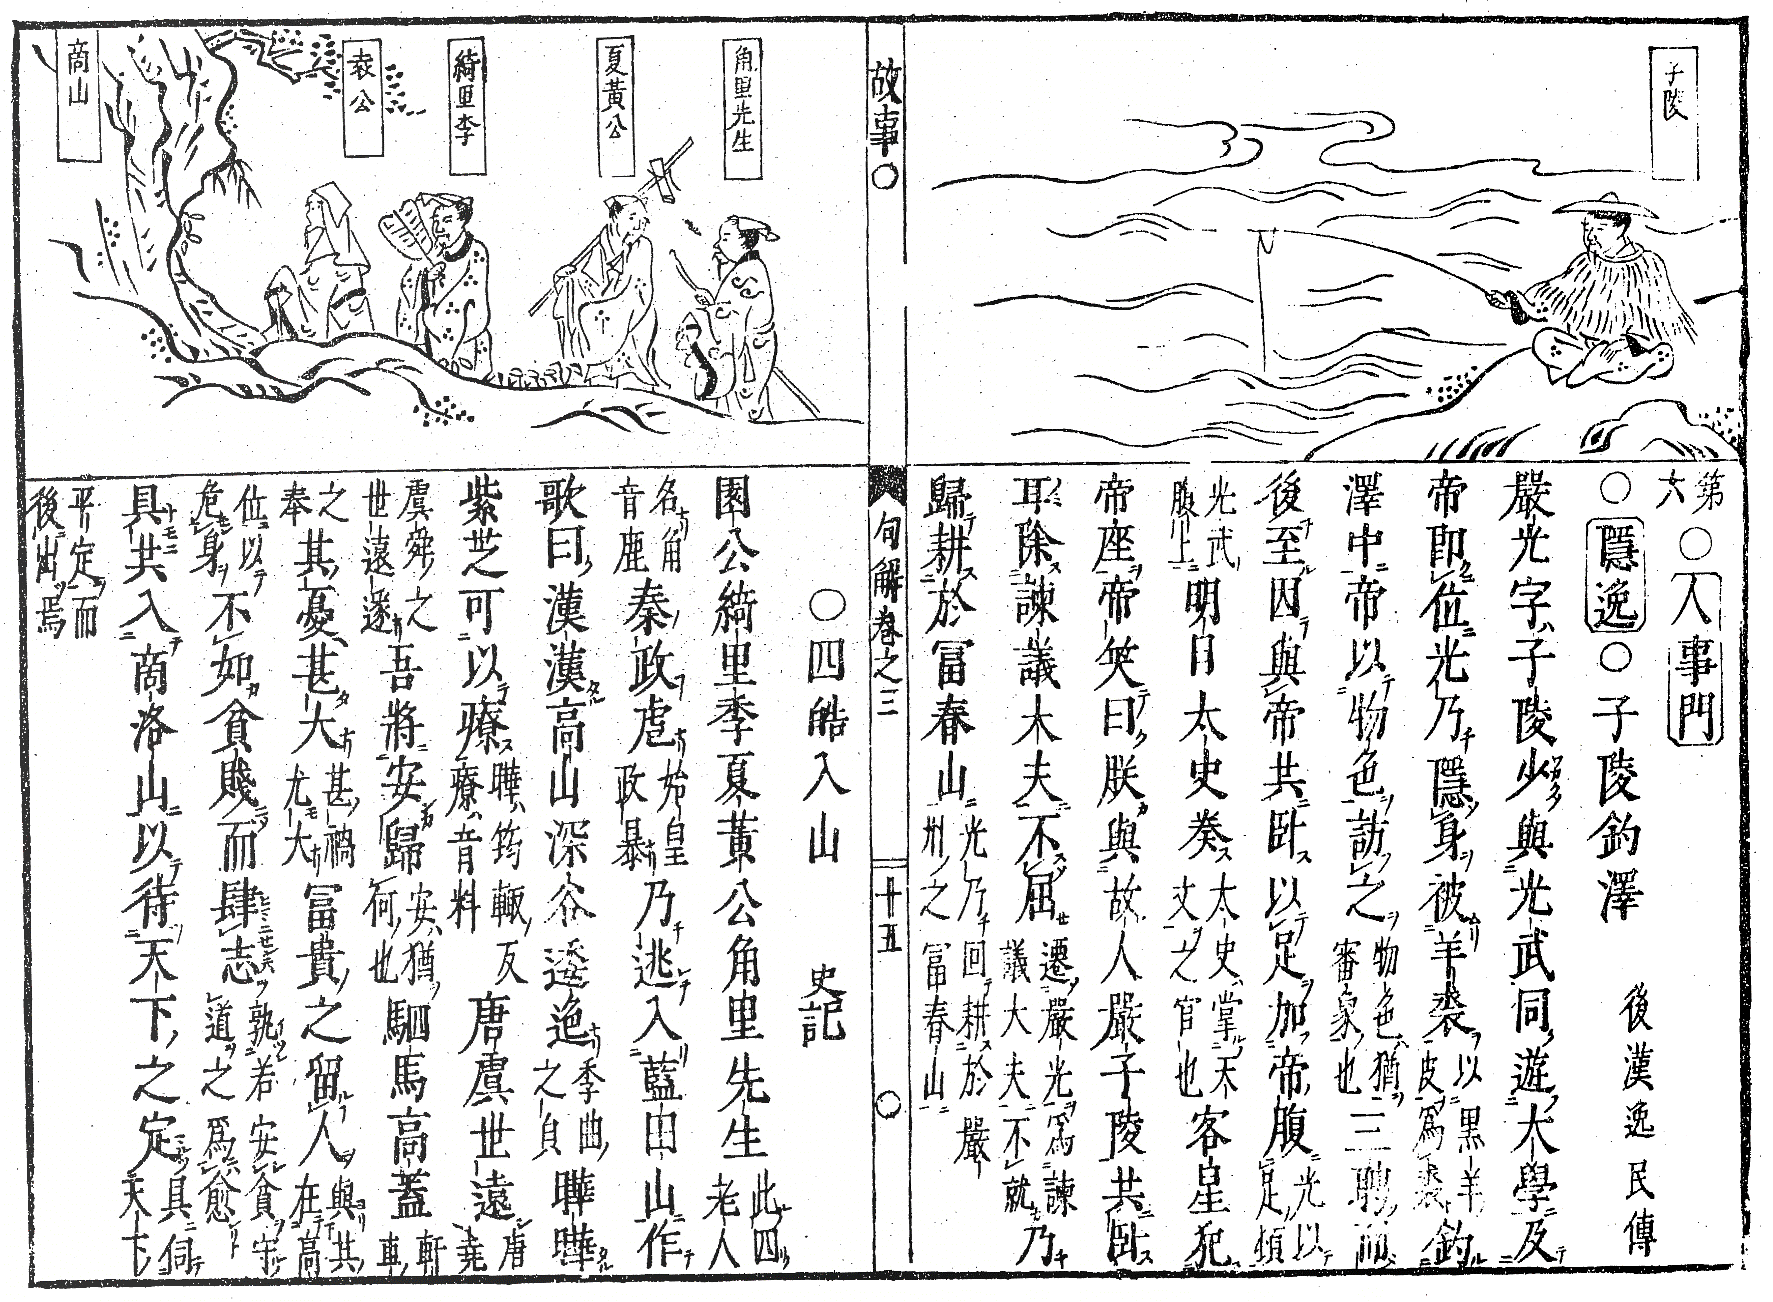 子陵
第六○人事門
○隱逸○子陵釣澤 後漢逸民傳
嚴光字子陵少與光武同遊大學及
帝即位光乃隱身被羊裘以黒羊皮爲裘釣
澤中帝以物色訪之物色猶審象也三聘而
後至因與帝共臥以足加帝腹光以足傾
光武腹上明日太史奏太史掌天文之官也客星犯
帝座帝笑曰朕與故人嚴子陵共臥
耳除諫議大夫不屈遷嚴光爲諫議大夫不就乃
歸耕於冨春山光乃回耕於嚴州之冨春山
故事○
句解卷之三
十五
○
角里先生
夏黃公
綺里季
袁公
商山
○四皓入山 史記
園公綺里季夏黃公角里先生此四老人
名角音鹿秦政虐始皇政暴乃逃入藍田山作
歌曰漠漠高山深谷逶迤季曲之皃曄曄
紫芝可以療曄筠輙反療音料唐虞世遠唐堯
虞舜之世遠遂吾將安歸安猶何也駟馬高蓋軒車
之奉其憂甚大甚禍尤大冨貴之留人與其在高
位以危身不如貧賤而肆志孰若安貧守道之爲愈
具共入商洛山以待天下之定具伺天下
平定而後出焉